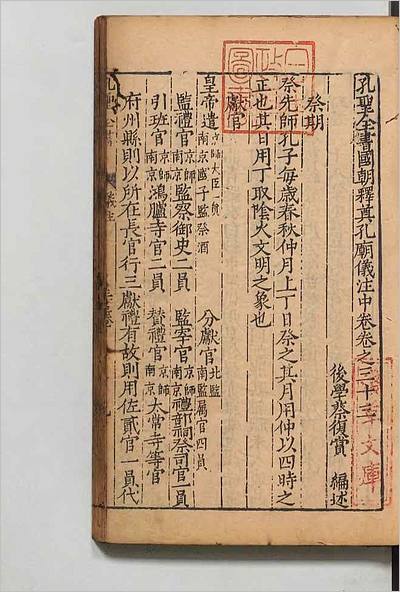 孔聖全書國朝釋奠孔廟儀注中卷卷之三十三
後學蔡復賞 編述
祭期
祭先師孔子每歲春秋仲月上丁日祭之其月用仲以四時之
正也其日用丁取陰火文明之象也
獻官
皇帝遣京師大臣一員南京國子監祭酒 分獻官北監南監属官四員
監禮官京師南京監察御史二員 監宰官京師南京禮部祠祭司官一員
引班官京師南京鴻臚寺官二員 賛禮官京師南京太常寺等官
府州縣則以所在長官行三獻禮有故則用佐貳官一員代